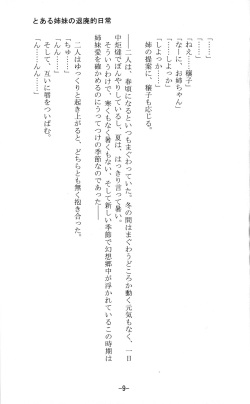 とある姉妹の退廃的日常
「……」
「……」
「ねえ……穣子」
「なーに、お姉ちゃん」
「……しよっか」
「しよっか」
姉の提案に、穣子も応じる。
――二人は、春頃になるといつもまぐわっていた。冬の間はまぐわうどころか動く元気もなく、一日
中炬燵でぼんやりしているし、夏は、はっきり言って暑い。
そういうわけで、寒くもなく暑くもない、そして新しい季節で幻想郷中が浮かれているこの時期は
姉妹愛を確かめるのにうってつけの季節なのであった――
二人はゆっくりと起き上がると、どちらとも無く抱き合った。
「ちゅ……」
「んん……」
そして、互いに唇をついばむ。
「ん……んん……」
-9-